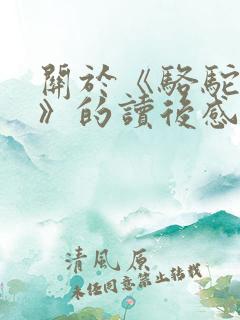 關於《駱駝
》的讀後感
清風原
未任同意禁止轉載